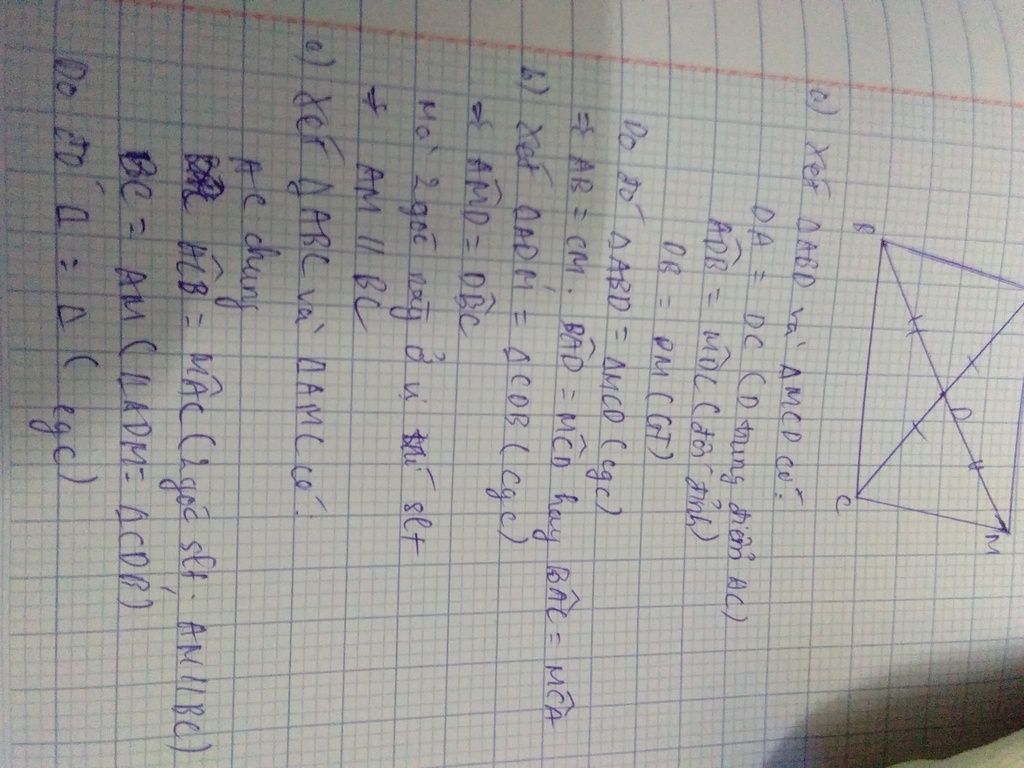 B
D
C
M
a) Xét ΔABD và ΔMCD có:
DA = DC (D trung điểm AC)
ADB = MDC (đối đỉnh)
DB = DM (GT)
Do đó ΔABD = ΔMCD (cgc)
⇒ AB = CM. BAD = MCD hay BAC = MCA
b) Xét ΔADM = ΔCDB (cgc)
⇒ AMD = DBC
Mà 2 góc này ở vị trí slt
⇒ AM // BC
c) Xét ΔABC và ΔAMC có:
AC chung
ACB = MAC (2 góc slt. AM // BC)
BC = AM (ΔADM = ΔCDB)
Do đó Δ = Δ (cgc)